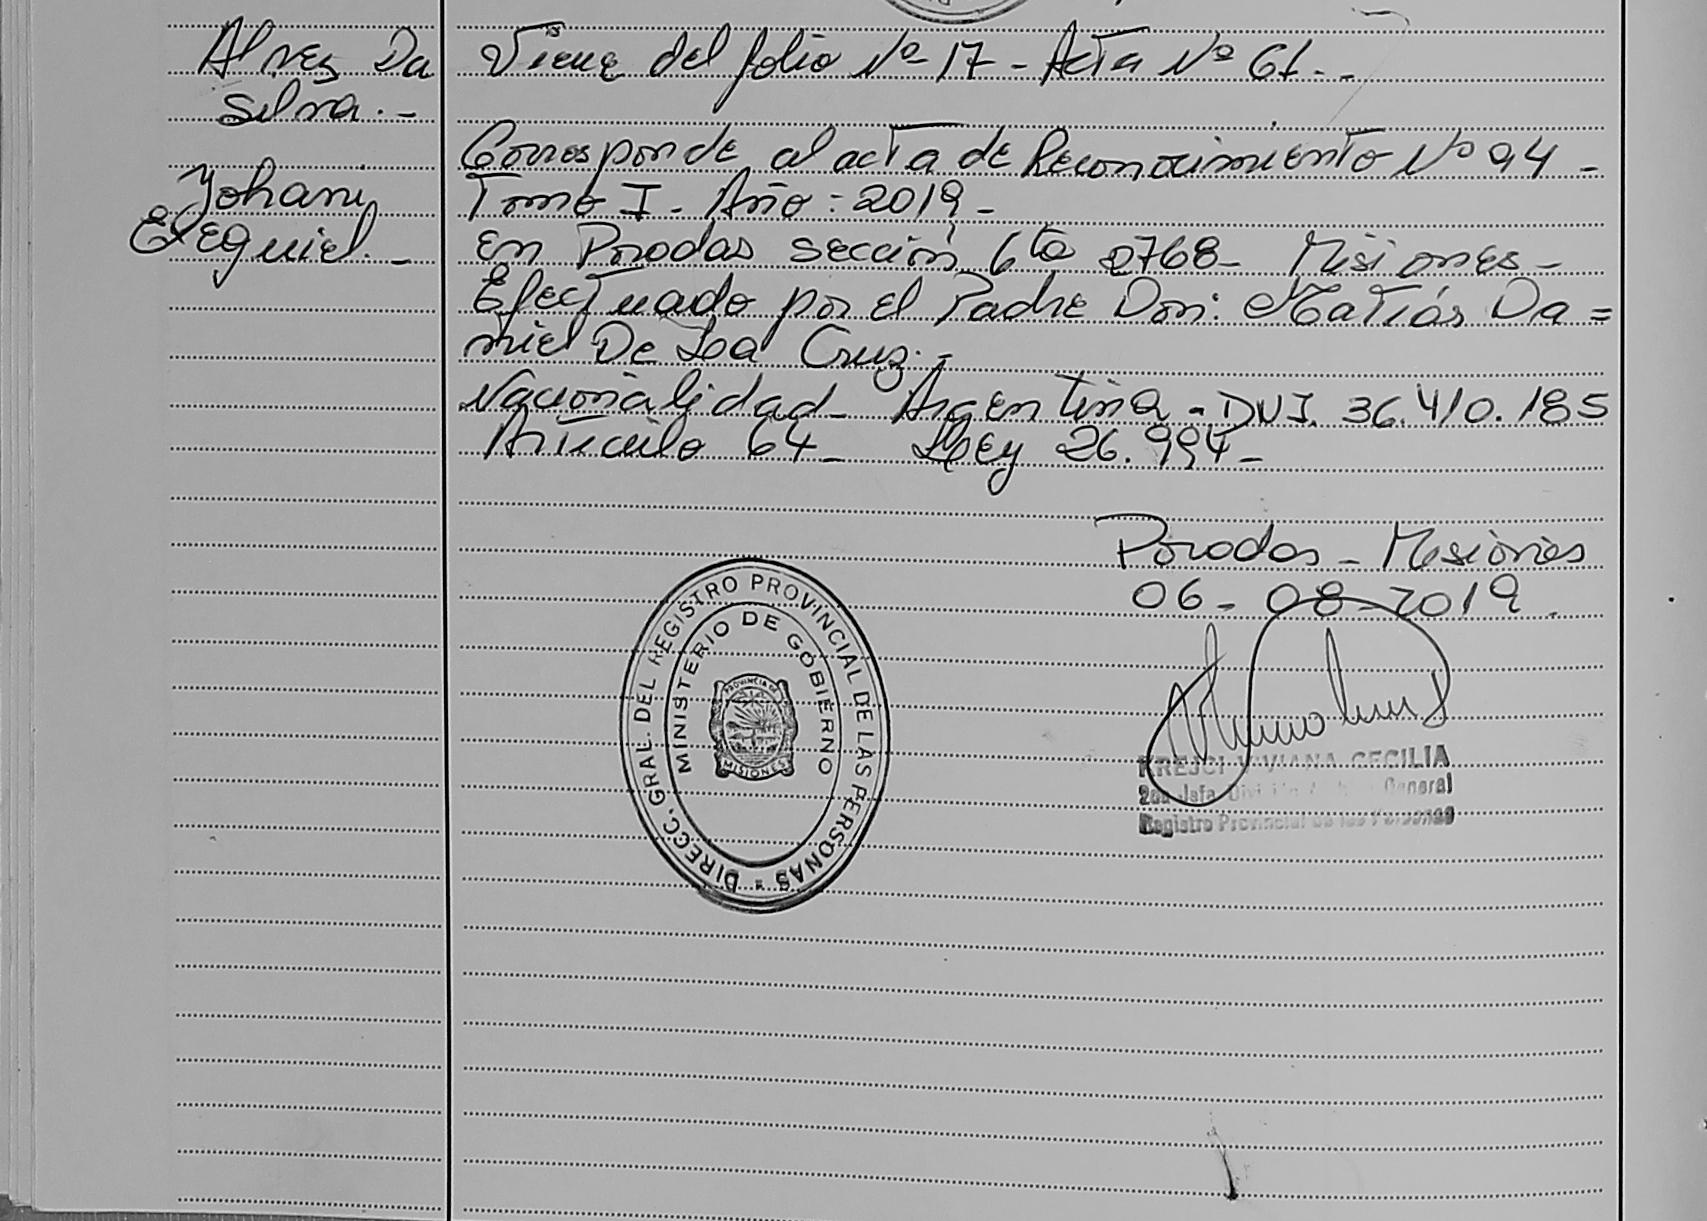 Alvez Da
Silva.-
Yohani
Exequiel.-
Viene del folio Nº 17 - Acta Nº 61.-
Corresponde al acta de Reconocimiento Nº 94 -
Tomo I - Año: 2019 -
en Posadas sección 6ta 2768 - Misiones -
Efectuado por el Padre Don: Matías Da=
niel De La Cruz.-
Nacionalidad - Argentina - DNI. 36.410.185
Artículo 64 - Ley 26.994 -
Posadas - Misiones
06 - 08 - 2019.
DIRECC. GRAL. DEL REGISTRO PROVINCIAL DE LAS PERSONAS
MINISTERIO DE GOBIERNO
PROVINCIA DE
MISIONES
KREJCI VIVIANA CECILIA
2da Jefa General
Registro Provincial de las Personas